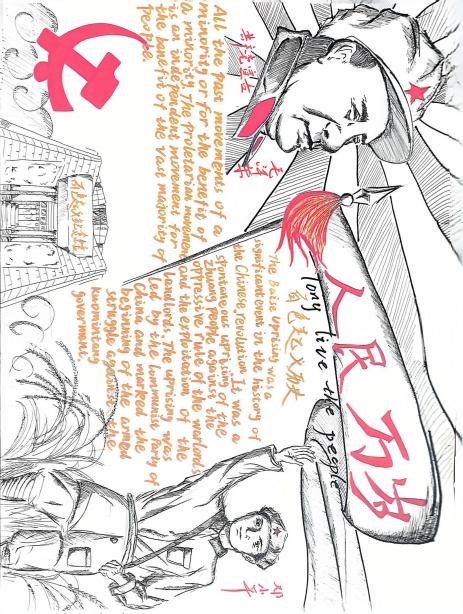 人民万岁
long live the people
毛泽东
百色起义历史
The Baise Uprising was a
significant event in the history of
the Chinese revolution It was a
spontaneous uprising of the
Zhuang people against the
oppressive rule of the warlords
and the exploitation of the
landlords. The uprising was
led by the Communist Party of
China and marked the
beginning of the armed
struggle against the
kuomintang
government
All the past movements of a
minority or for the benefit of
a minority. The proletarian movement
is an independent movement for
the benefit of the vast majority of
people.
邓小平